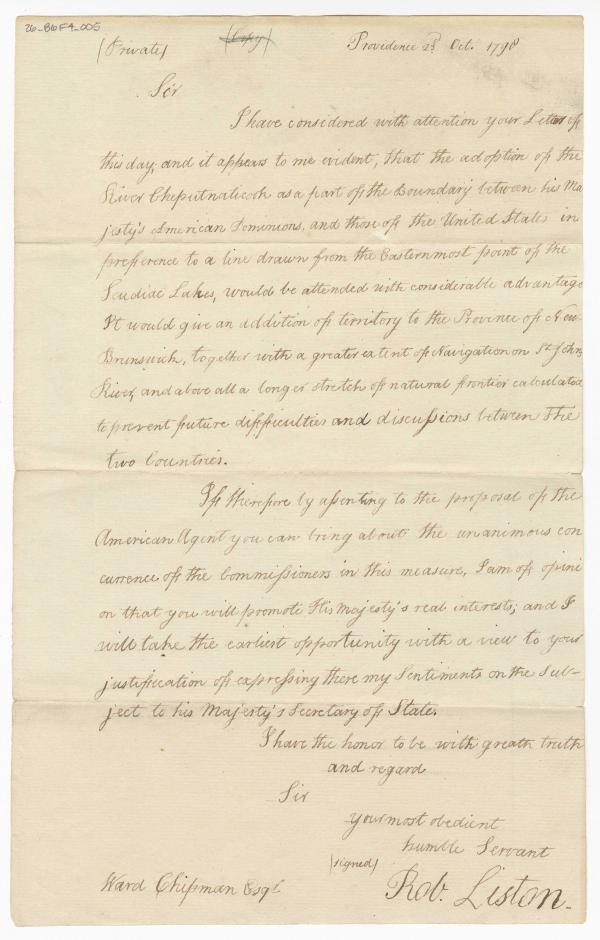 26-B6F4-005
(Private) (Copy) Providence 23d Oct. 1798
Sir
I have considered with attention your Letter of
this day, and it appears to me evident, that the adoption of the
River Cheputnaticook as a part of the Boundary between his Ma
jesty's American Dominions, and those of the United States in
preference to a line drawn from the Easternmost point of the
Scudiac Lakes, would be attended with considerable advantage
It would give an addition of territory to the Province of New
Brunswick, together with a greater extent of Navigation on St. John's
River, and above all a longer stretch of natural frontier calculated
to prevent future difficulties and discussions between The
two Countries.
If therefore by assenting to the proposal of the
American Agent you can bring about the unanimous con
currence of the Commissioners in this measure, I am of opini
on that you will promote His Majesty's real interests; and I
will take the earliest opportunity with a view to your
justification of expressing there my Sentiments on the Sub-
ject to his Majesty's Secretary of State.
I have the honor to be with great truth
and regard
Sir
your most obedient
humble Servant
(signed)
Ward Chipman Esqr. Rob. Liston.